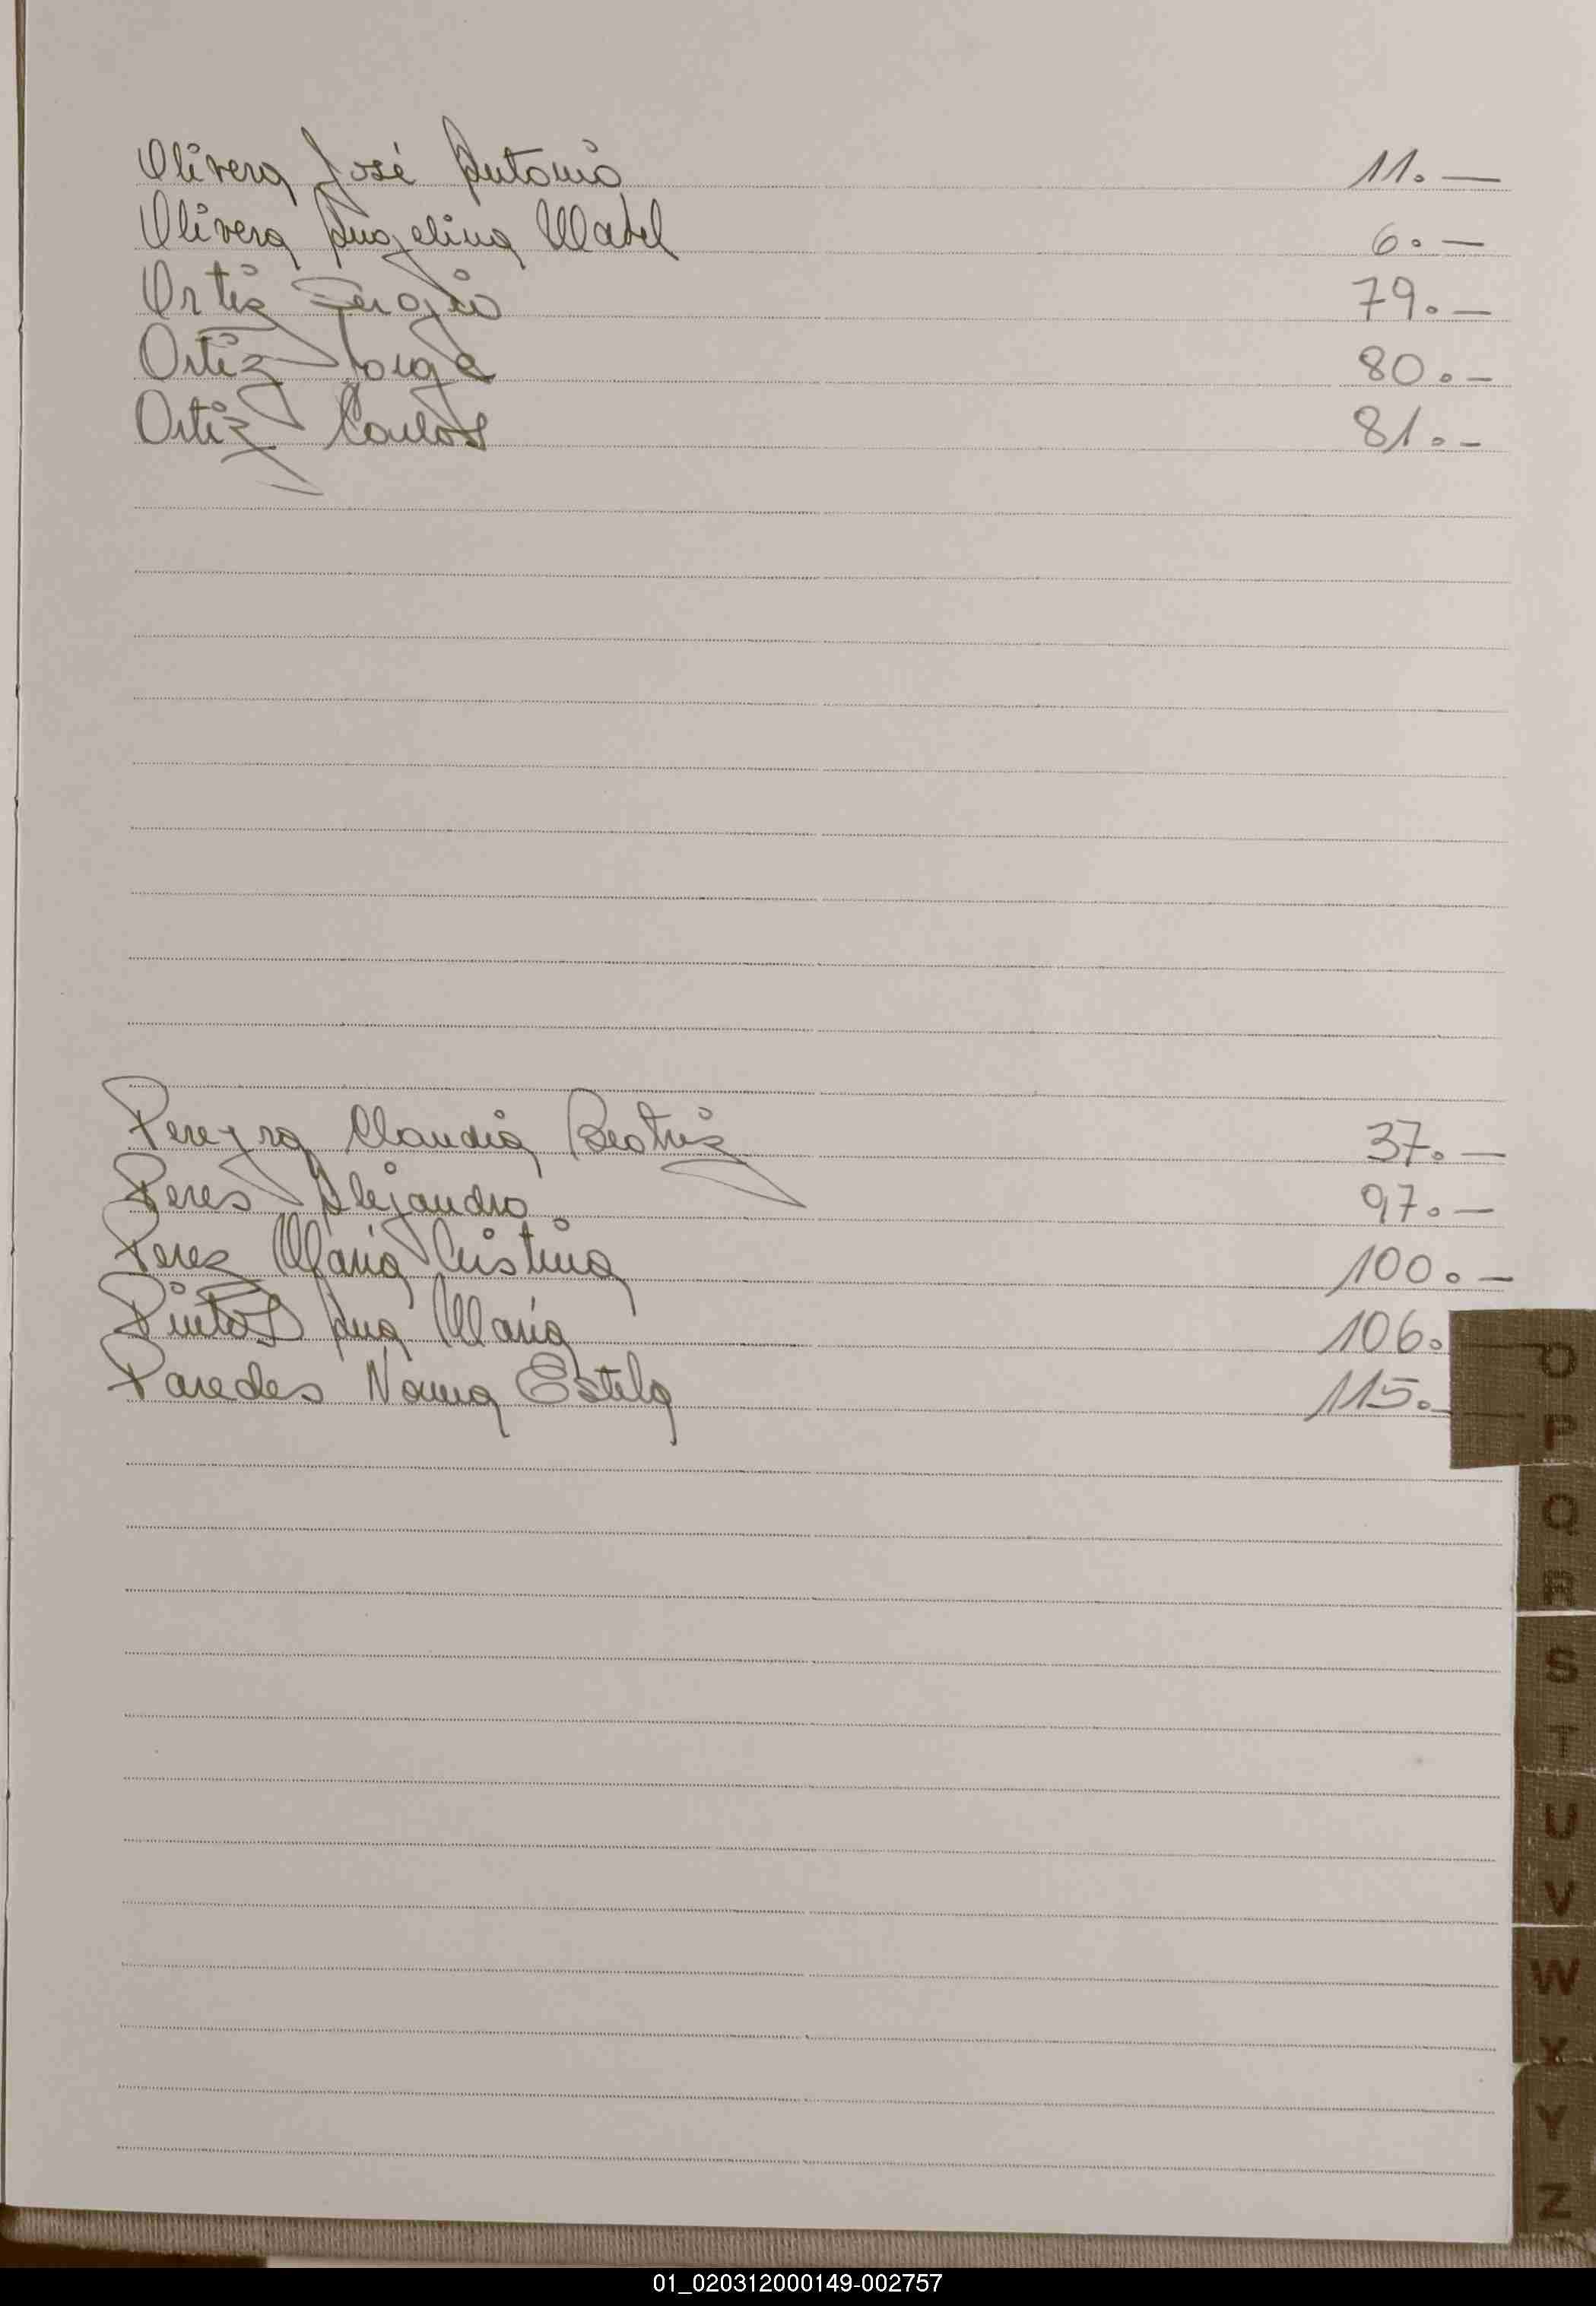 Olivera José Antonio 11.—
Olivera Angelina Mabel 6.—
Ortiz Sergio 79.—
Ortiz Jorge 80.—
Ortiz Carlos 81.—
Pereyra Claudia Beatriz 37.—
Peres Alejandro 97.—
Perez María Cristina 100.—
Pintos Ana María 106.
Paredes Norma Estela 115.—
O
P
Q
R
S
T
U
V
W
X
Y
Z
01_020312000149-002757